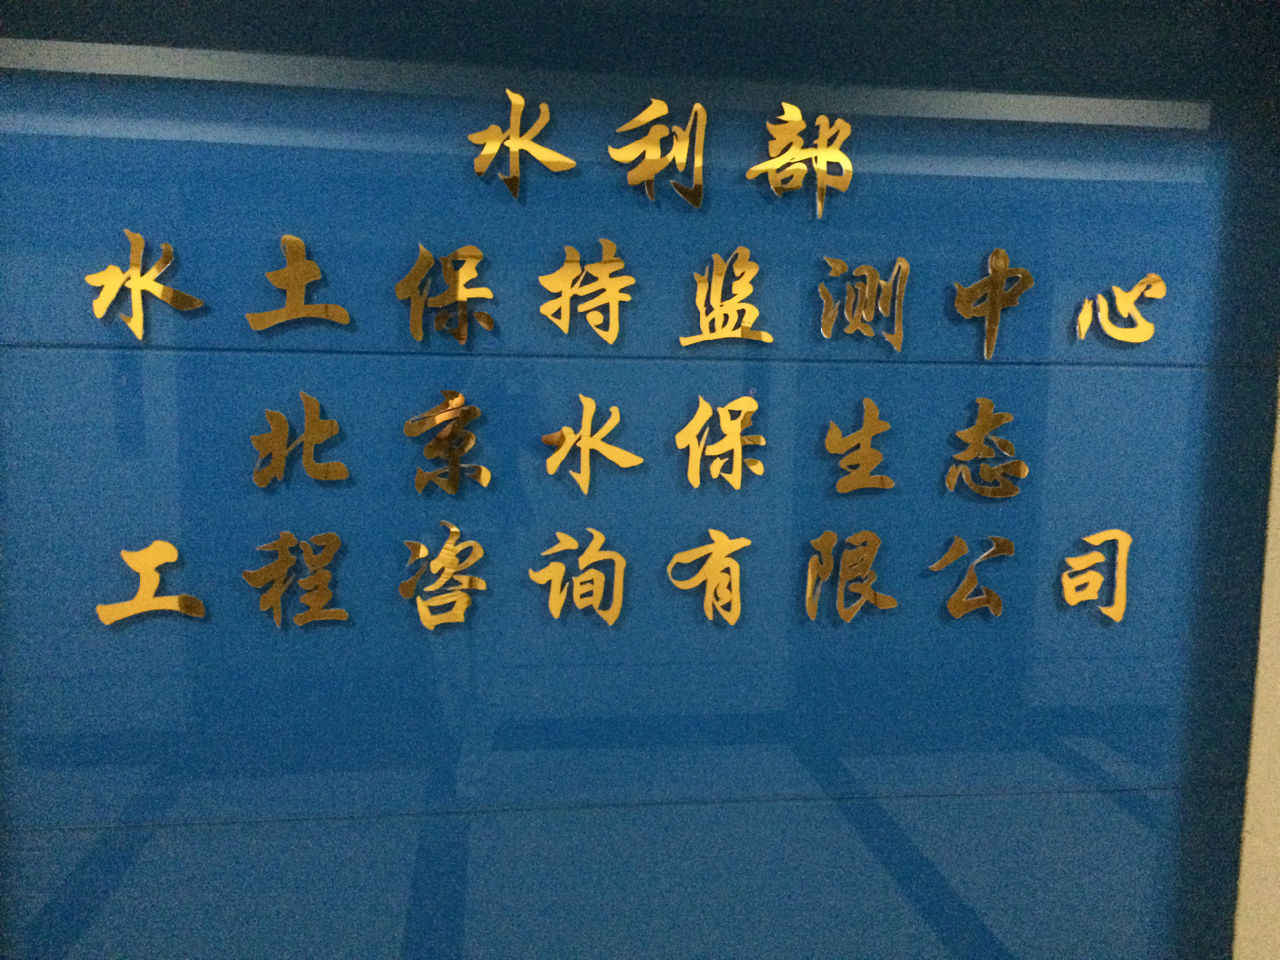 水利部
水土保持监测中心
北京水保生态
工程咨询有限公司